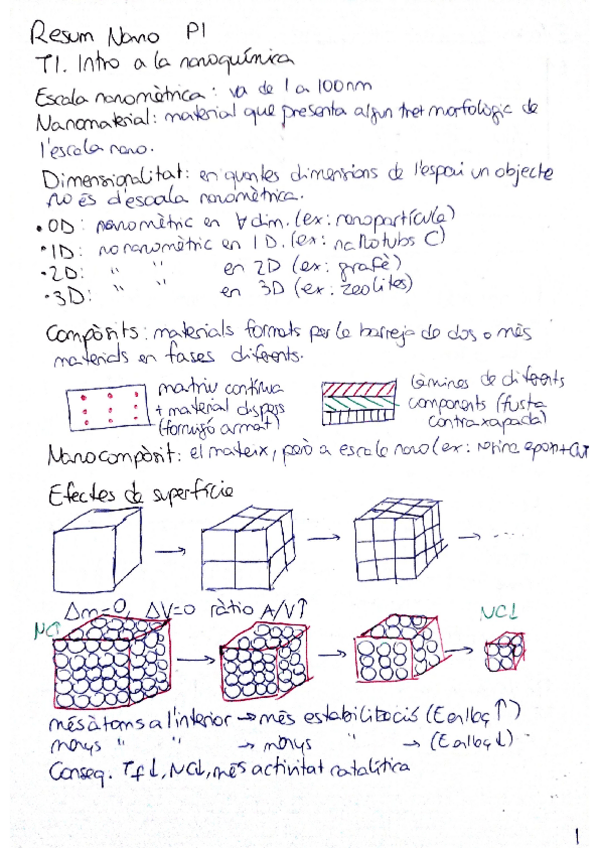 Resum Nano P1
T1. Intro a la nanoquímica
Escala nanomètrica: va de 1 a 100nm
Nanomaterial: material que presenta algun tret morfològic de
l'escala nano.
Dimensionalitat: en quantes dimensions de l'espai un objecte
no és d'escala nanomètrica.
• 0D: nanomètric en ∀ dim. (ex: nanopartícula)
• 1D: no nanomètric en 1D. (ex: nanotubs C)
• 2D: " " en 2D (ex: grafè)
• 3D: " " en 3D (ex: zeolites)
Compòsits: materials formats per la barreja de dos o més
materials en fases diferents.
matriu contínua
+ material dispers
(formigó armat)
Làmines de diferents
components (fusta
contraxapada)
Nanocompòsit: el mateix, però a escala nano (ex:
Efectes de superfície
Δm=0, ΔV=0 ràtio A/V↑
NC↑
NC↓
més àtoms a l'interior → més estabilització (Eenllaç ↑)
menys " " → menys " → (Eenllaç ↓)
Conseq. Tf↓, NC↓, més activitat catalítica
1